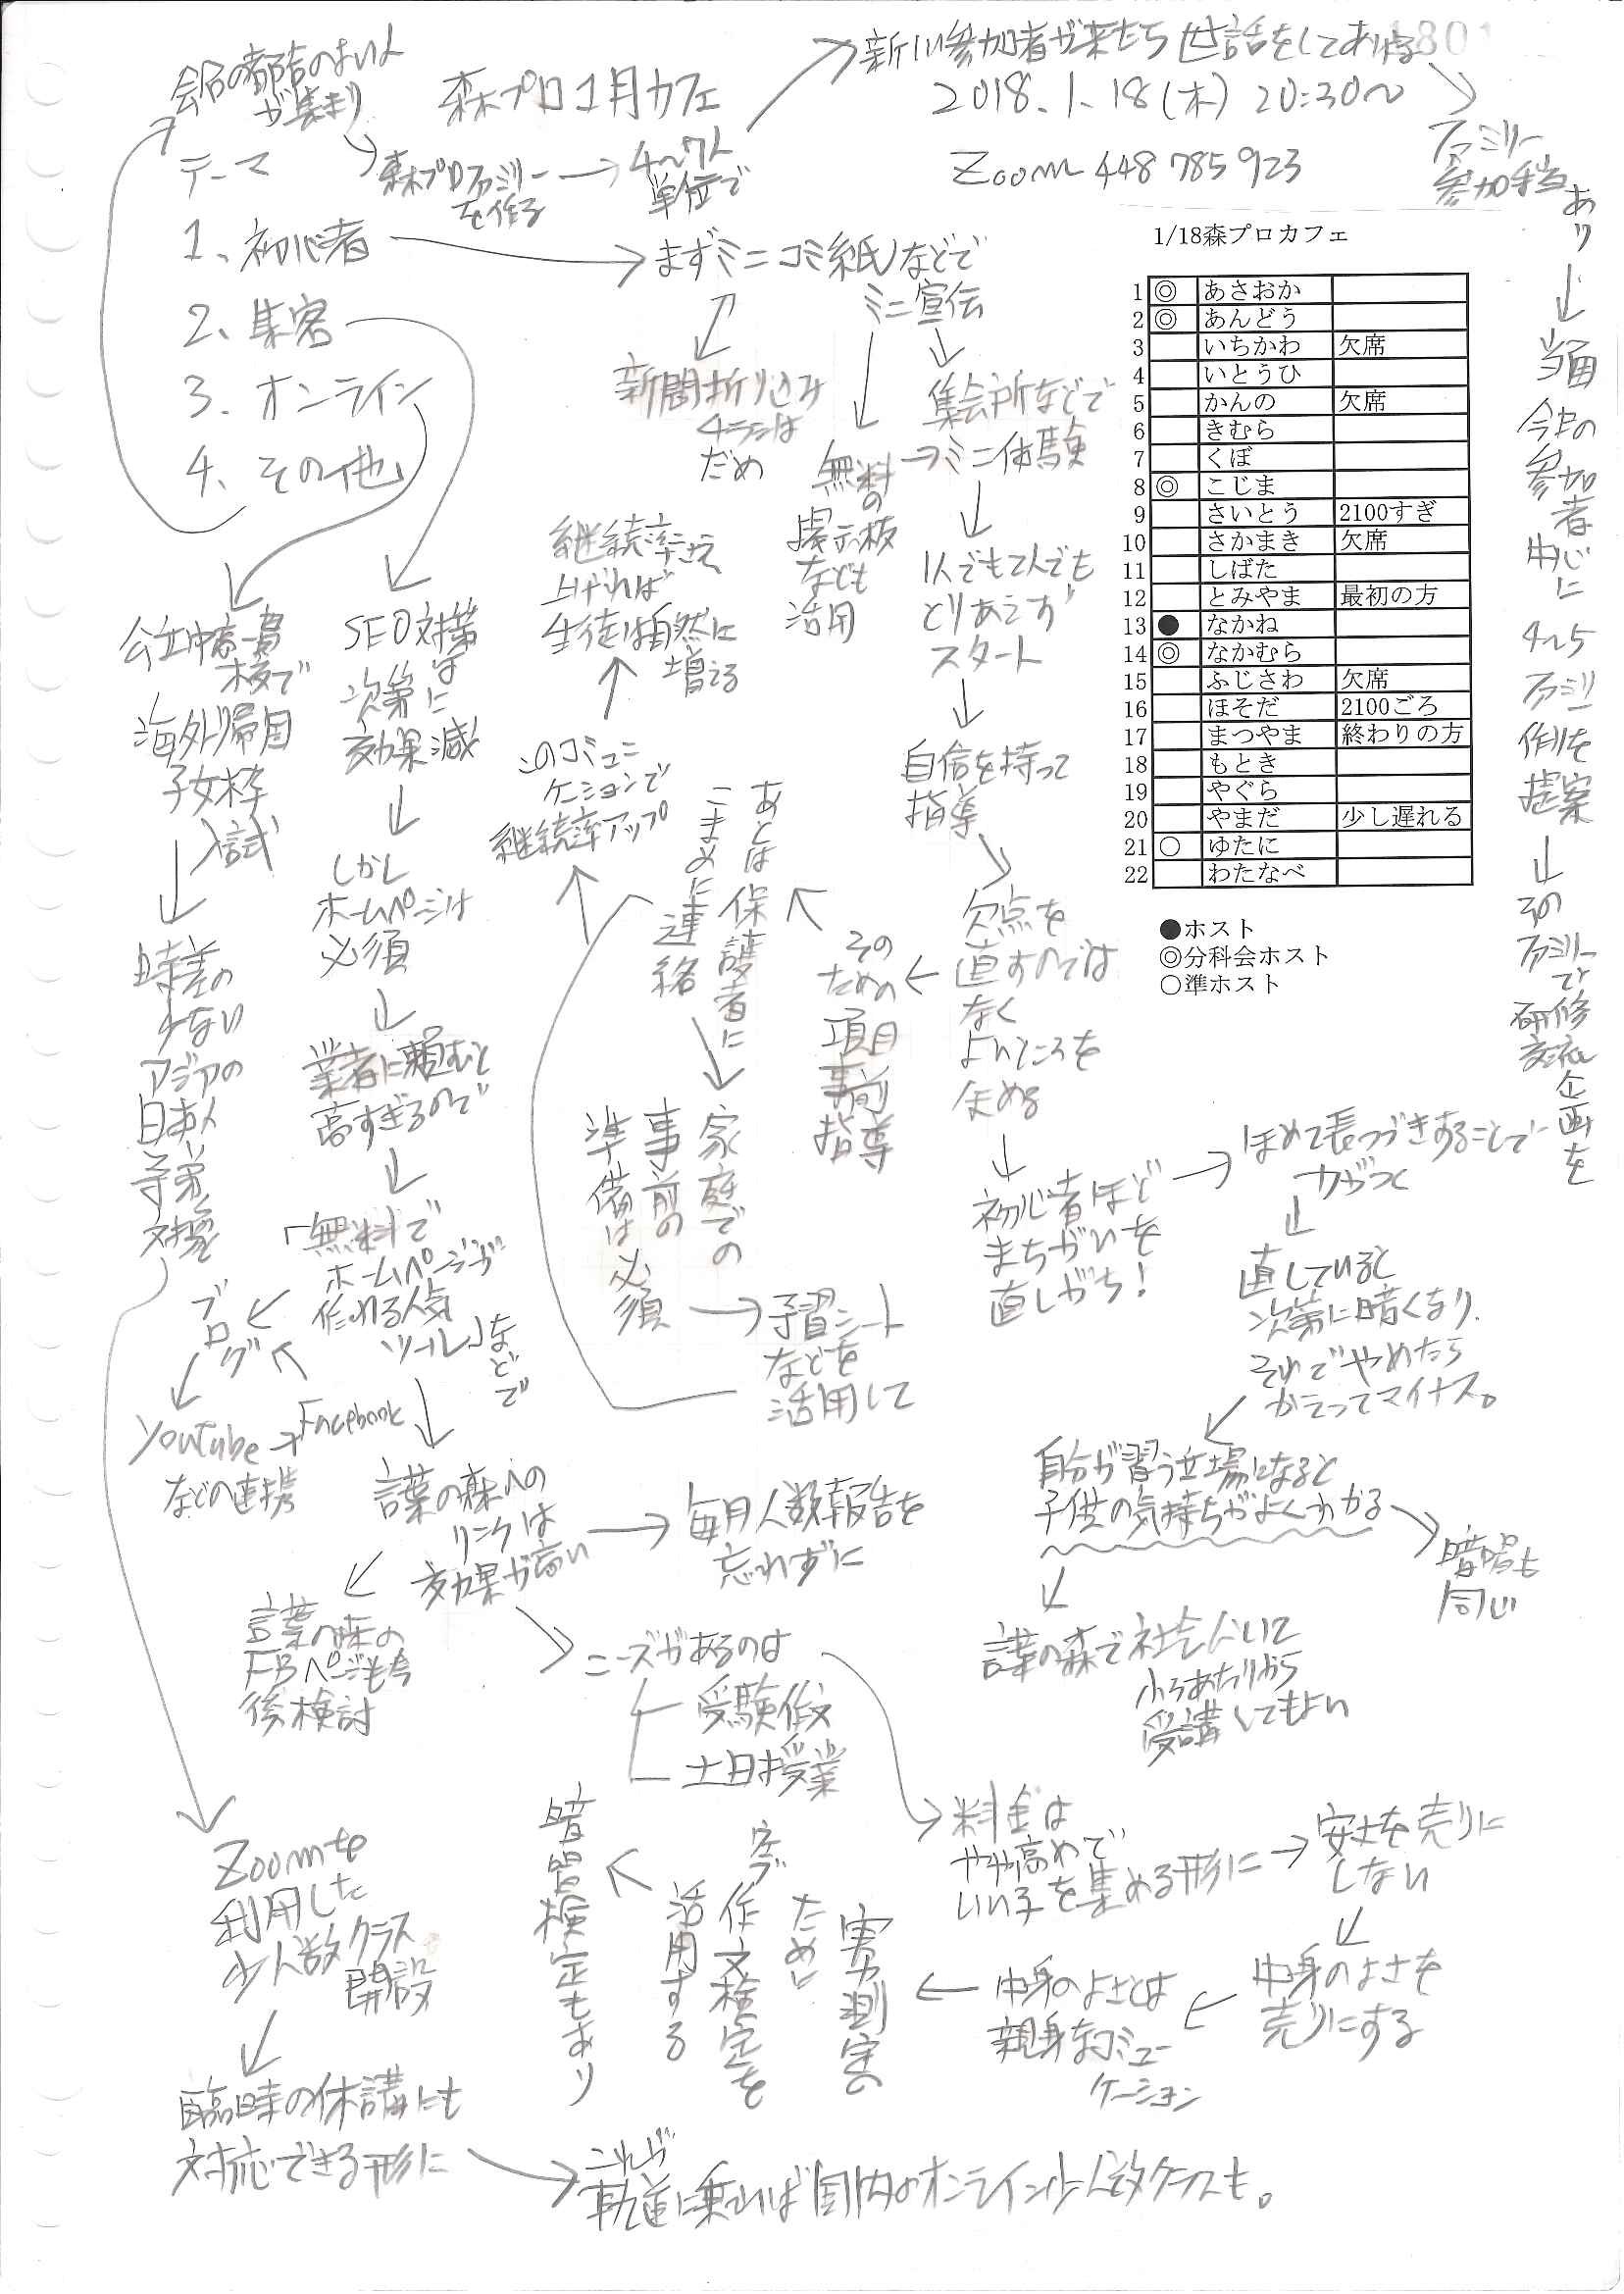 森プロ1月カフェ
2018.1.18(木) 20:30〜
Zoom 448 785 923
テーマ
1、初心者
2、集客
3、オンライン
4、その他
会合の都合のよい人
が集まり
森プロファミリー
を作る
4〜7人
単位で
新しい参加者が来たら世話をしてあげる
ファミリー
参加手当
あり
当面
今日の
参加者
中心に
4〜5
ファミリ
作りを
提案
その
ファミリーで
研修
交流
企画を
まずミニコミ紙などで
ミニ宣伝
新聞折り込み
チラシは
だめ
無料の
掲示板
なども
活用
集会所などで
ミニ体験
1人でも2人でも
とりあえず
スタート
自信を持って
指導
欠点を
直すのでは
なく
よいところを
ほめる
その
ための
項目
事前
指導
あとは保護者に
こまめに連絡
このコミュニ
ケーションで
継続率アップ
継続率さえ
上げれば
生徒は自然に
増える
家庭での
事前の
準備は必須
予習シート
などを
活用して
初心者ほど
まちがいを
直しがち!
ほめて長つづきすることで
力がつく
直していると
次第に暗くなり、
それでやめたら
かえってマイナス。
自分が習う立場になると
子供の気持ちがよくわかる
暗唱も
同じ
言葉の森で社会人いて
小5あたりから
受講してもよい
SEO対策
は
次第に
効果減
しかし
ホームページは
必須
業者に頼むと
高すぎるので
「無料で
ホームページが
作れる人気
ツール」など
で
ブログ
Youtube
Facebook
などの連携
言葉の森への
リンクは
効果が高い
毎月人数報告を
忘れずに
言葉の森の
FBページも今
後検討
ニーズがあるのは
受験作文
土日授業
料金は
やや高めで
いい子を集める形に
安さを売りに
しない
中身のよさを
売りにする
中身のよさとは
親身なコミュニ
ケーション
実力測定の
ために
作文検定を
活用する
暗唱検定もあり
公立中高一貫
校で
海外帰国
子女枠
入試
時差の
少ない
アジアの
日本人
子弟
対象
Zoomを
利用した
少人数クラス
開設
臨時の休講にも
対応できる形に
これが
軌道に乗れば国内のオンライン少人数クラスも。
1/18森プロカフェ
1 ◎ あさおか
2 ◎ あんどう
3 いちかわ 欠席
4 いとうひ
5 かんの 欠席
6 きむら
7 くぼ
8 ◎ こじま
9 さいとう 2100すぎ
10 さかまき 欠席
11 しばた
12 とみやま 最初の方
13 ● なかね
14 ◎ なかむら
15 ふじさわ 欠席
16 ほそだ 2100ごろ
17 まつやま 終わりの方
18 もとき
19 やぐら
20 やまだ 少し遅れる
21 ○ ゆたに
22 わたなべ
●ホスト
◎分科会ホスト
○準ホスト